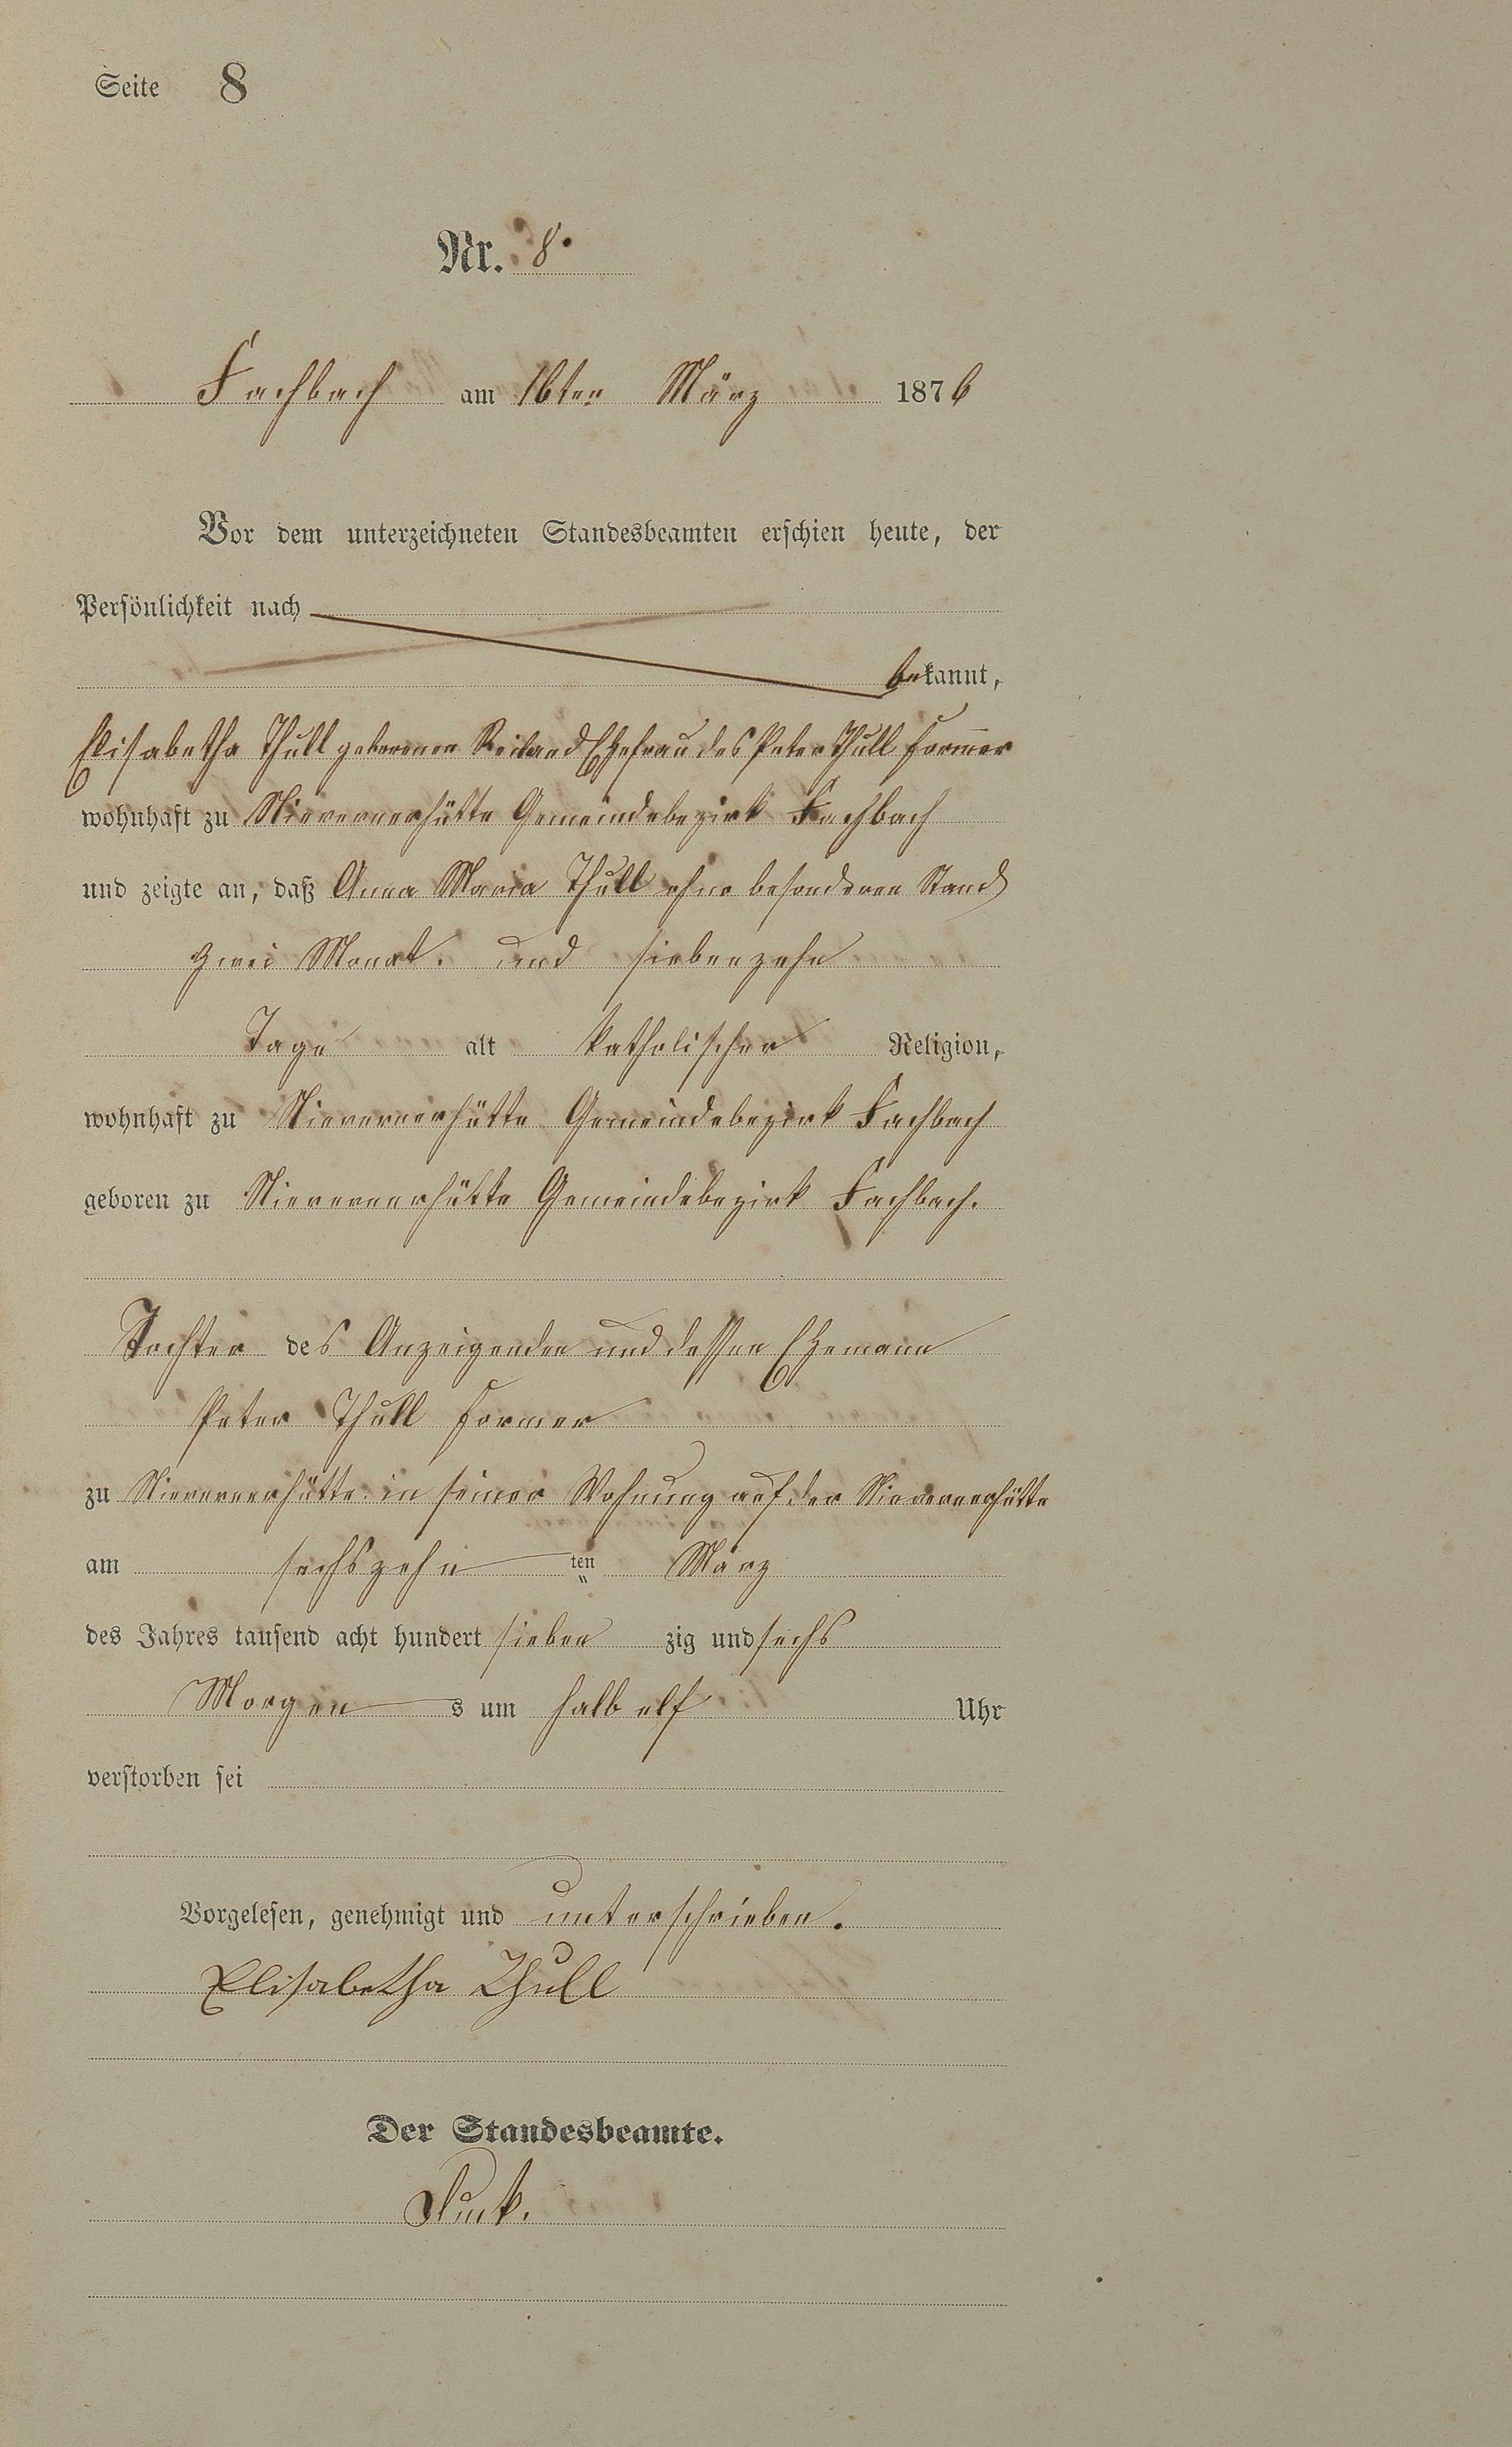 Seite 8
Nr. 8.
Fachbach am 16ten März 1876
Vor dem unterzeichneten Standesbeamten erschien heute, der
Persönlichkeit nach
bekannt,
Elisabetha Thull geborenen Reiland Ehefrau des Peter Thull Former
wohnhaft zu Nievernerhütte Gemeindebezirk Fachbach
und zeigte an, daß Anna Maria Thull ohne besonderen Stand
zwei Monat. und siebenzehn
Tage alt katholischer Religion,
wohnhaft zu Nievernerhütte Gemeindebezirk Fachbach
geboren zu Nievernerhütte Gemeindebezirk Fachbach.
Tochter des Anzeigenden und dessen Ehemann
Peter Thull Former
zu Nievernerhütte in seiner Wohnung auf der Nievernerhütte
am sechszehn ten März
des Jahres tausend acht hundert sieben zig und sechs
Morgen s um halb elf Uhr
verstorben sei
Vorgelesen, genehmigt und unterschrieben.
Elisabetha Thull
Der Standesbeamte.